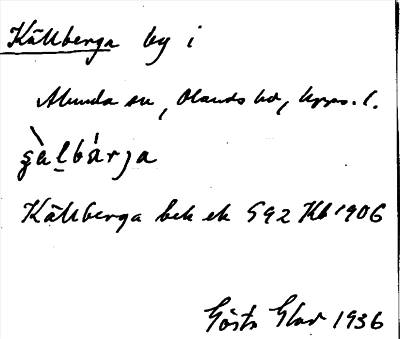 Källberga by i
Munda sn, Olands hd, Upps. l.
Källberga bek ek 592 Kb 1906
Gösta Glad 1936